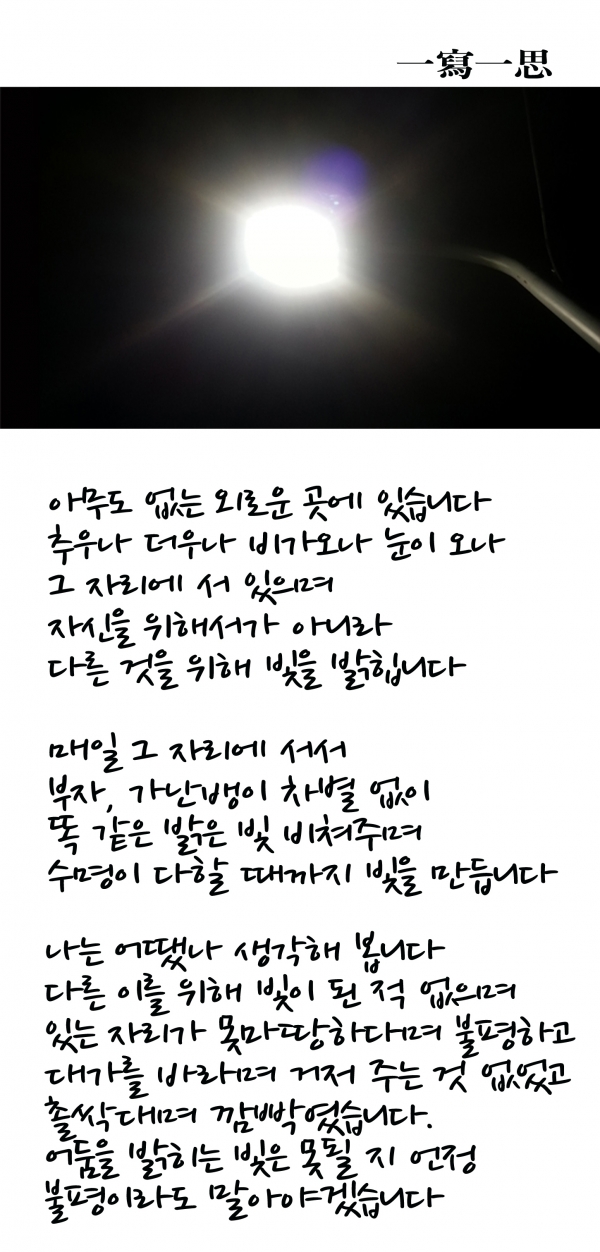 一寫一思
아무도 없는 외로운 곳에 있습니다
추우나 더우나 비가오나 눈이 오나
그 자리에 서 있으며
자신을 위해서가 아니라
다른 것을 위해 빛을 밝힙니다
매일 그 자리에 서서
부자, 가난뱅이 차별 없이
똑 같은 밝은 빛 비쳐주며
수명이 다할 때까지 빛을 만듭니다
나는 어땠나 생각해 봅니다
다른 이를 위해 빛이 된 적 없으며
있는 자리가 못마땅하다며 불평하고
대가를 바라며 거저 주는 것 없었고
촐싹대며 깜빡였습니다.
어둠을 밝히는 빛은 못될 지 언정
불평이라도 말아야겠습니다